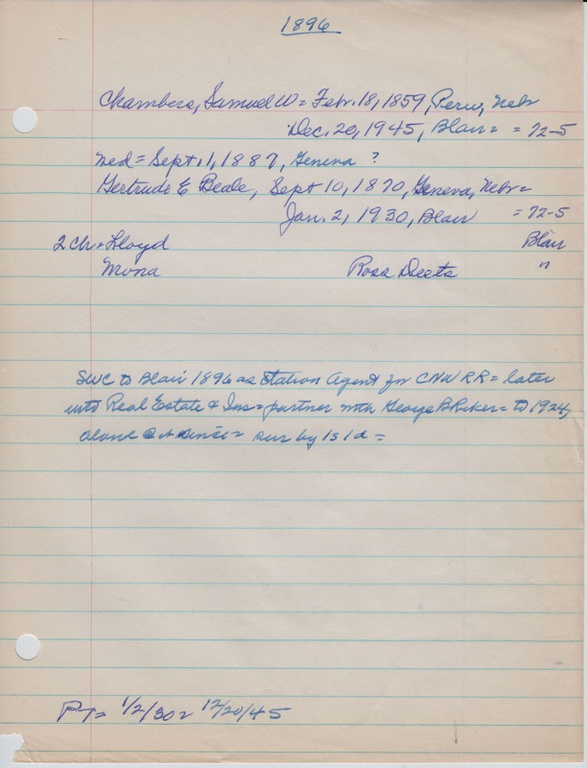 1896
Chambers, Samuel W = Feb. 18, 1859, Peru, Nebr
Dec. 20, 1945, Blair = = 72-5
Med = Sept. 1, 1887, Geneva ?
Gertrude E Beale, Sept 10, 1870, Geneva, Nebr =
Jan. 2, 1930, Blair = 72-5
2 Ch = Lloyd Blair
Mona Rosa Deets "
SWC to Blair 1896 as Station Agent for CNW RR = later
into Real Estate & Ins = partner with George B Riker = to 1924,
alone at it since = sur by 1s 1d =
P-T = 1/2/30 = 12/20/45